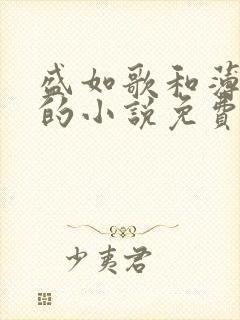 盛如歌和薄
的小说免费
少夷君